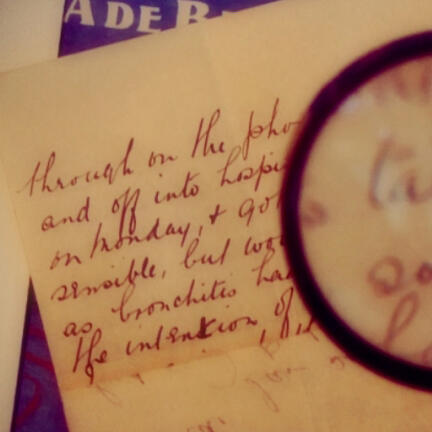 ADE B
through on the pho
and off into hospi
on Monday, & go
sensible, but wo
as bronchitis ha
the intention of